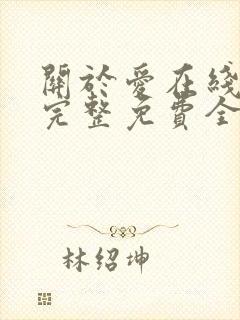 關於愛在綫
完整免費全
林绍坤